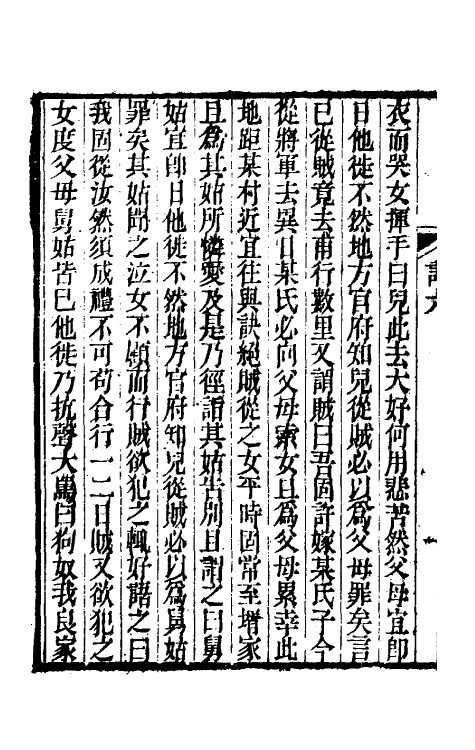 衣而哭女揮手曰兒此去大好何用悲苦然父母宜卽
日他徙不然地方官府知兒從賊必以爲父母罪矣言
已從賊竟去甫行數里又謂賊曰吾固許嫁某氏子今
從將軍去異日某氏必向父母索女且爲父母累幸此
地距某村近宜往與訣絕賊從之女平時固常至壻家
且爲其姑所憐愛及是乃徑詣其姑吿別且謂之曰舅
姑宜卽日他徙不然地方官府知兒從賊必以爲舅姑
罪矣其姑聞之泣女不顧而行賊欲犯之輒好諸之曰
我固從汝然須成禮不可苟合行一二日賊又欲犯之
女度父母舅姑皆已他徙乃抗聲大罵曰狗奴我良家